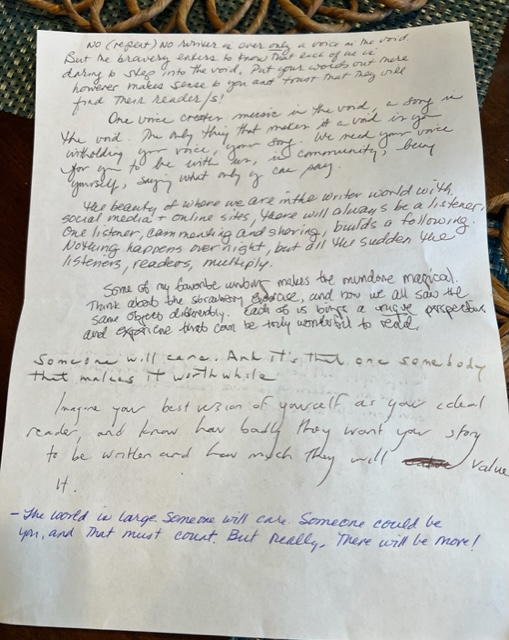 No (repeat) No writer is ever only a voice in the void.
But the bravery enters to know that each of us is
daring to step into the void. Put your words out there
however makes sense to you and trust that they will
find their reader/s!
One voice creates music in the void, a story in
the void. The only thing that makes it a void is you
witholding your voice, your story. We need your voice
for you to be with us, in community, being
yourself, saying what only you can say.
The beauty of where we are in the writer world with
social media + online sites, there will always be a listener.
One listener, commenting and sharing, builds a following.
Nothing happens over night, but all the sudden the
listeners, readers, multiply.
Some of my favorite writing makes the mundane magical.
Think about the strawberry exercise, and how we all saw the
same objects differently. Each of us brings a unique perspective
and experience that can be truly wonderful to read.
Someone will care. And it's that one somebody
that makes it worthwhile
Imagine your best version of yourself as your ideal
reader, and know how badly they want your story
to be written and how much they will value
it.
- The world is large. Someone will care. Someone could be
you, and that must count. But really, there will be more!